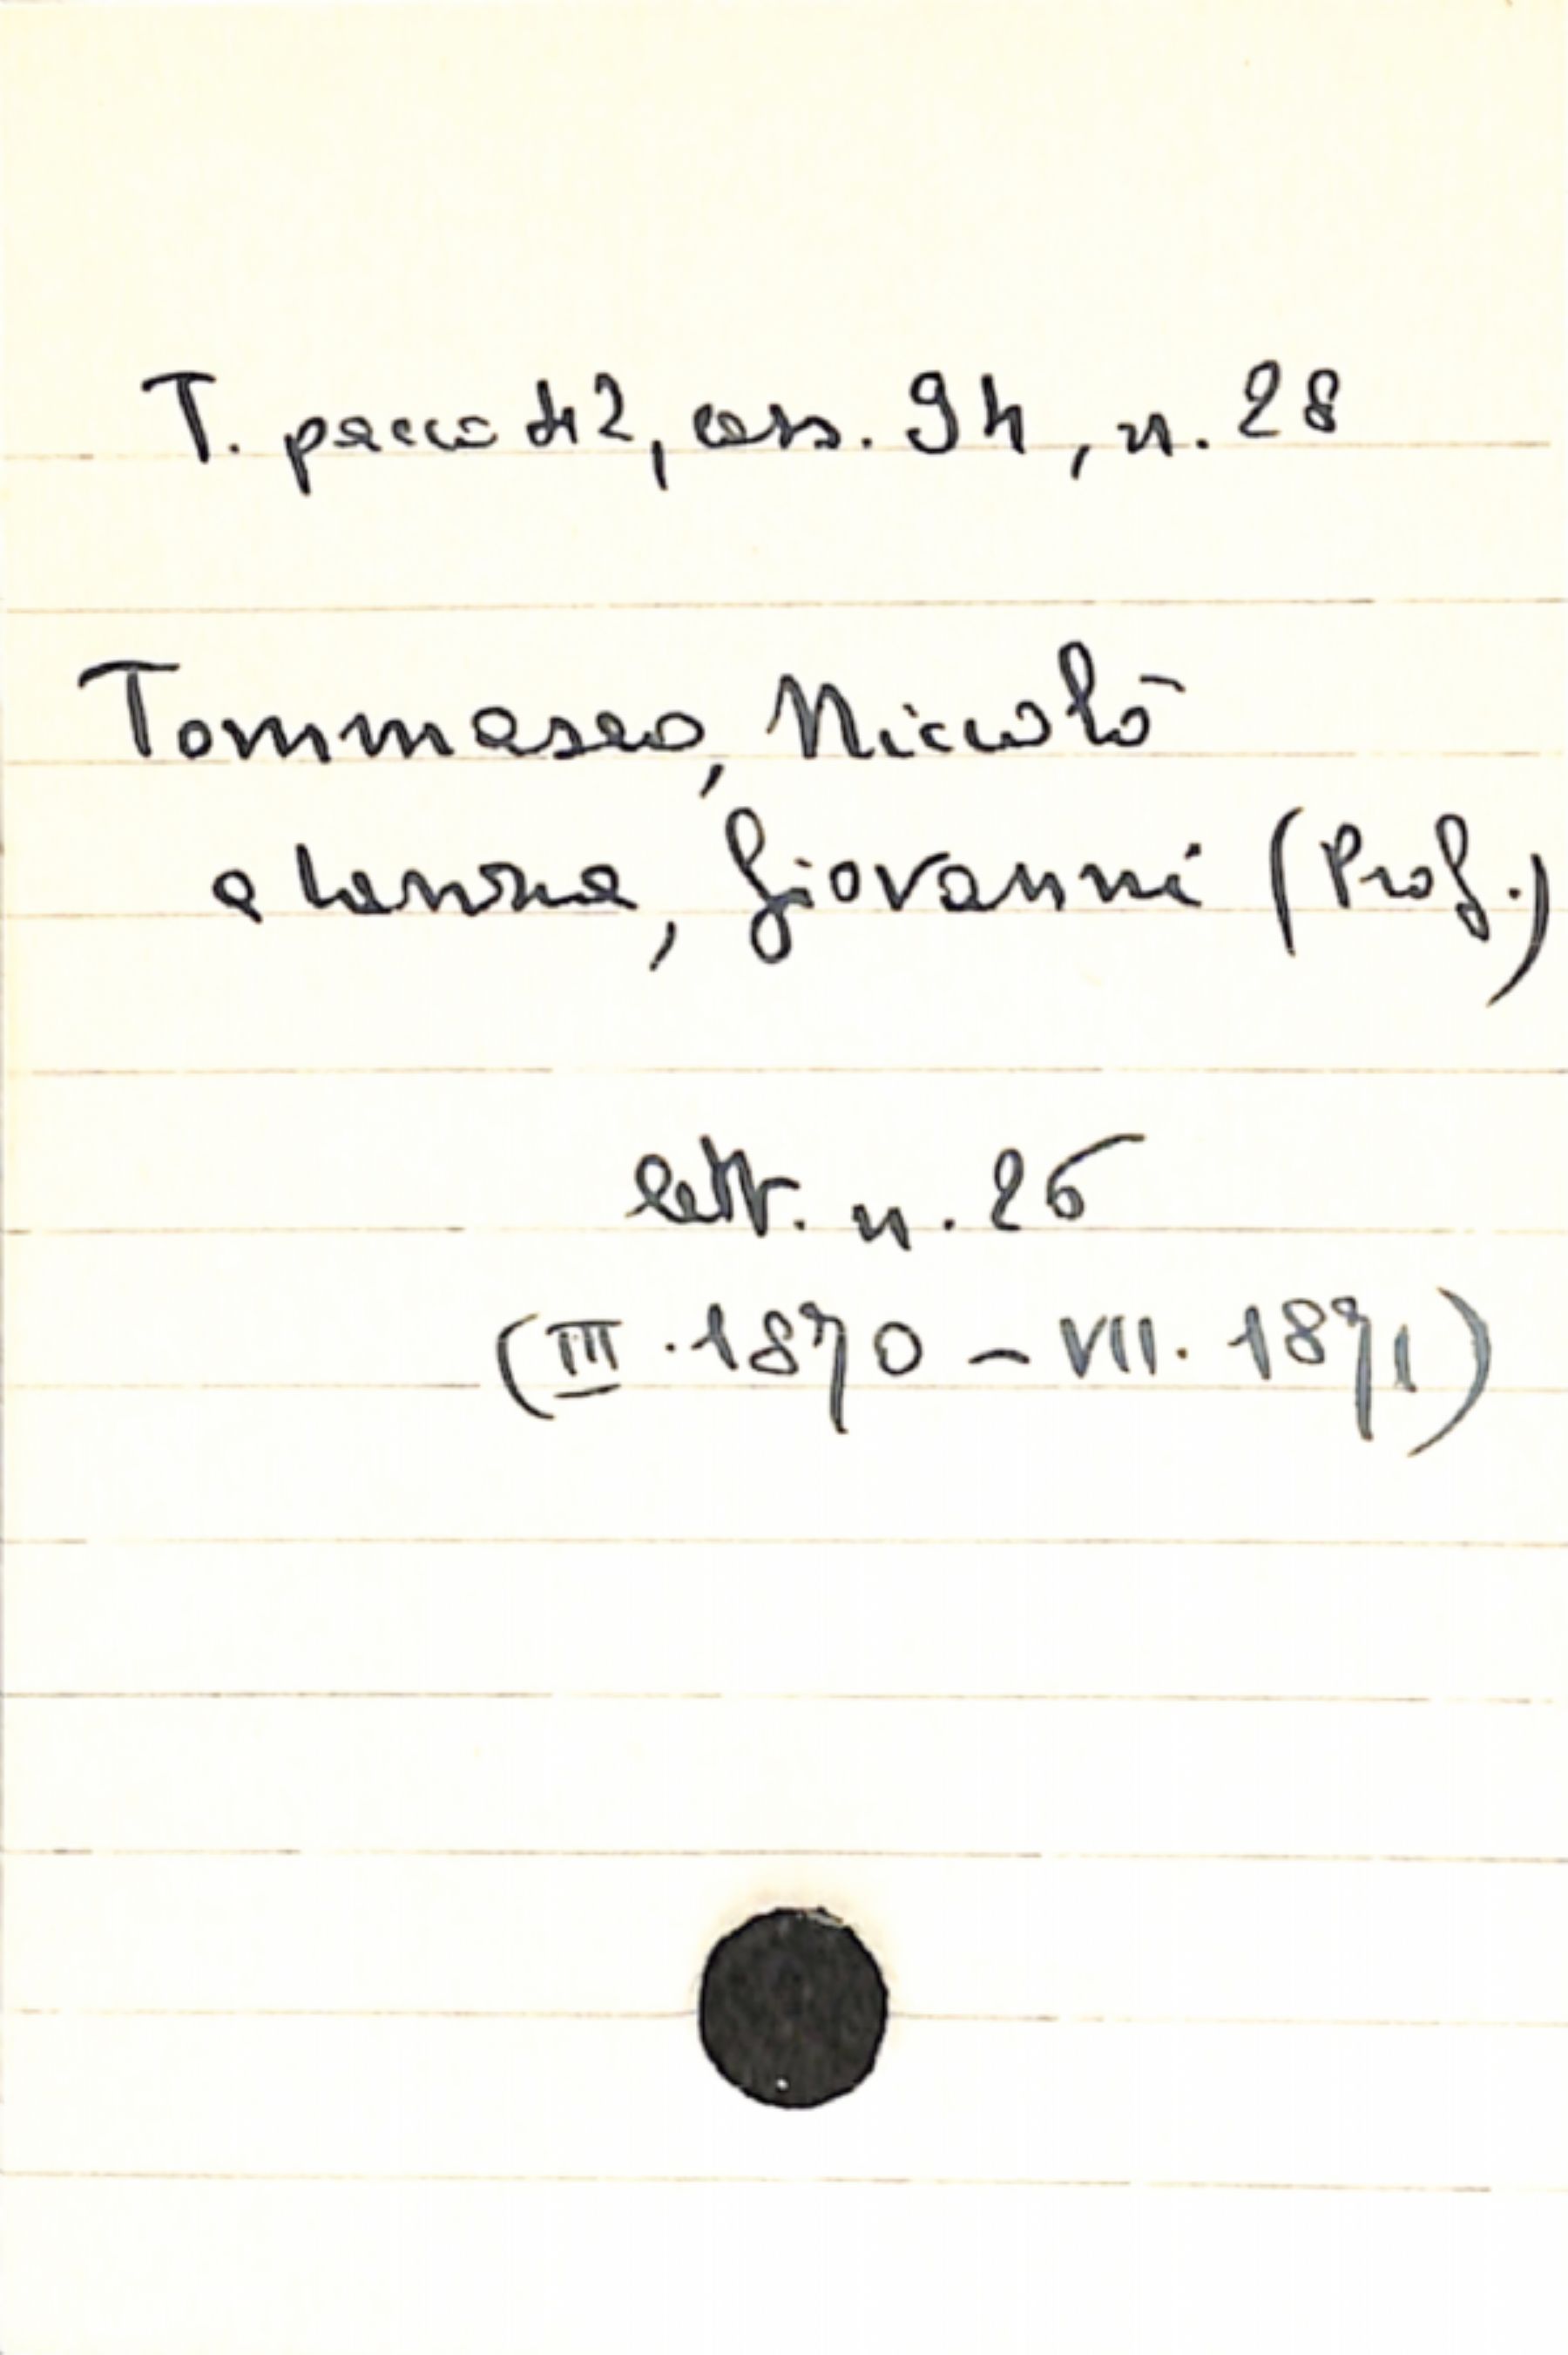 T. pacco 42, cass. 94, n. 28
Tommaseo, Niccolò
a Giovanni (Prof.)
lett. n. 26
(III. 1870 - VII. 1871)